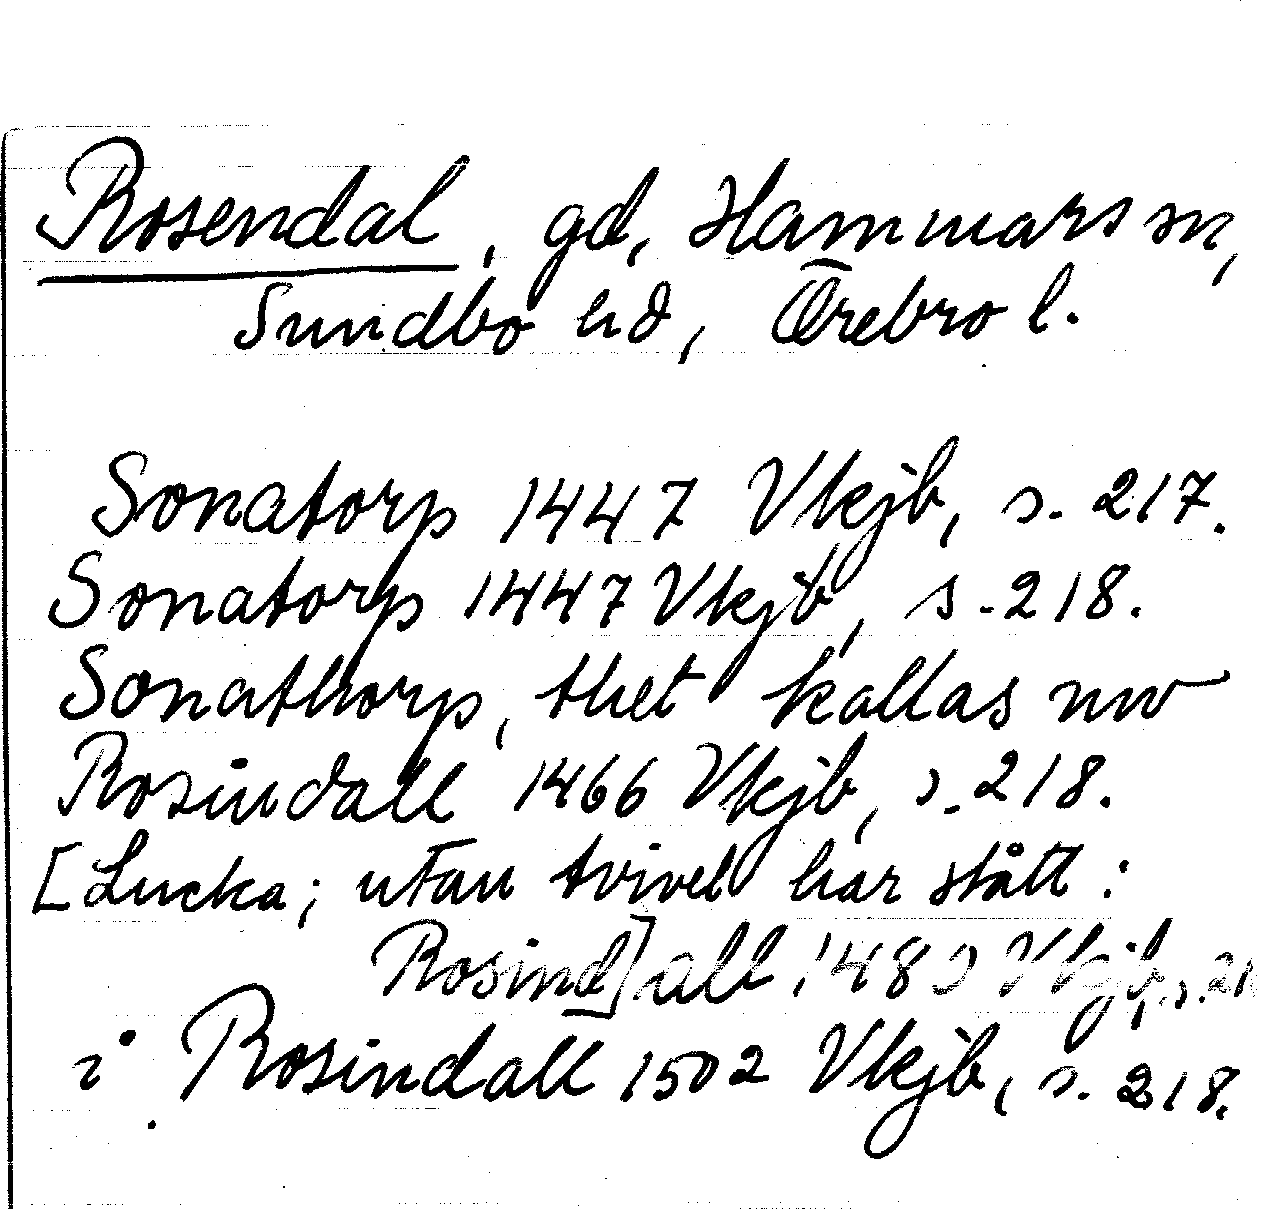 Rosendal, gd, Hammars sn,
Sundbo hd, Örebro l.
Sonatorp 1447 Vkjb, s. 217.
Sonatorp 1447 Vkjb, s. 218.
Sonathorp, thet kallas nw
Rosindall 1466 Vkjb, s. 218.
[Lucka; utan tvivel har stått:
Rosind]all Vkjb, s.
i Rosindall 1502 Vkjb, s. 218.